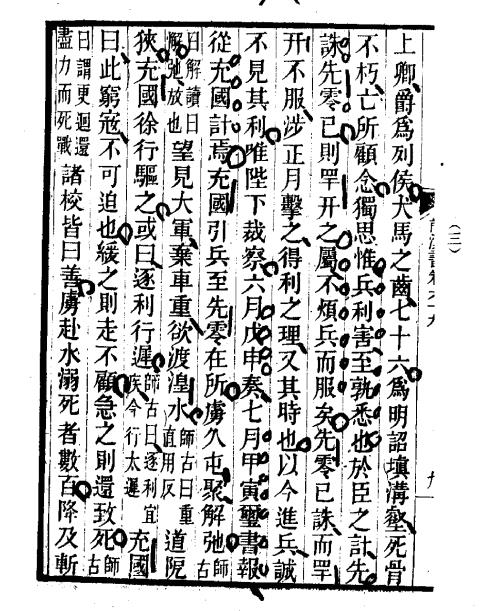 上卿爵爲列侯犬馬之齒七十六爲明詔塡溝壑死骨
不朽亡所顧念獨思惟兵利害至孰悉也於臣之計先
誅先零已則罕开之屬不煩兵而服矣先零已誅而罕
开不服涉正月擊之得利之理又其時也以今進兵誠
不見其利惟陛下裁察六月戊申奏七月甲寅璽書報
從充國計焉充國引兵至先零在所虜久屯聚解弛師古
曰解讀曰解弛放也望見大軍棄車重欲渡湟水師古曰重直用反道阸
狹充國徐行驅之或曰逐利行遲師古曰逐利宜疾今行太遲充國
曰此窮寇不可迫也緩之則走不顧急之則還致死師古
曰謂更迴還盡力而死戰諸校皆曰善虜赴水溺死者數百降及斬
（三）